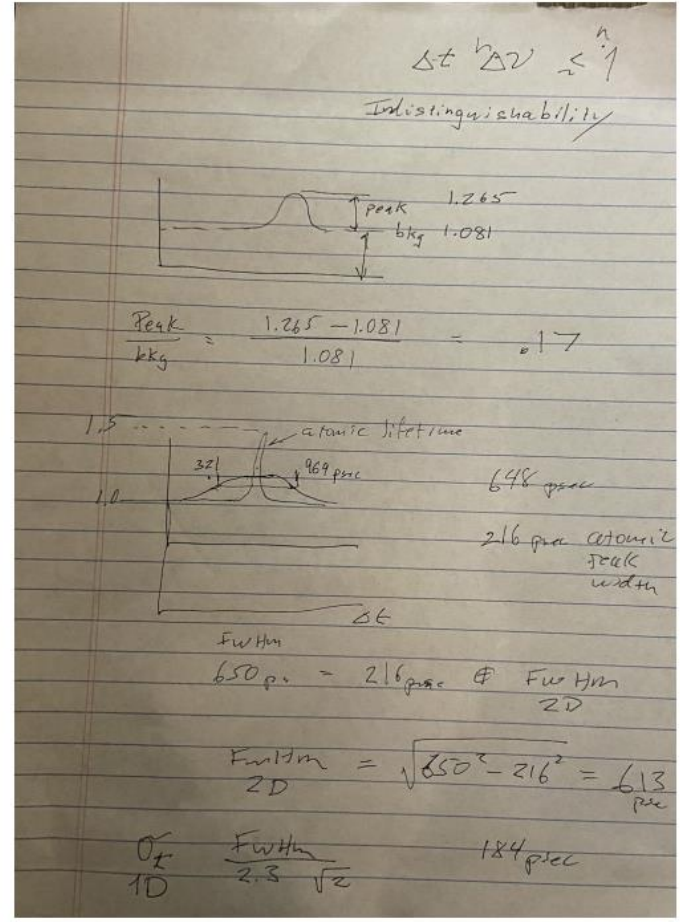 Δt Δν ≤ 1
Indistinguishability
peak 1.265
bkg 1.081
Peak/bkg = (1.265 - 1.081)/1.081 = .17
1.5 atomic lifetime
321 969 psec 648 psec
1.0
216 psec atomic
peak
width
Δt
FWHM
650 ps = 216 psec ⊕ FWHM
2D
FWHM = √(650² - 216²) = 613
2D psec
σt FWHM 184 psec
1D 2.3 √2